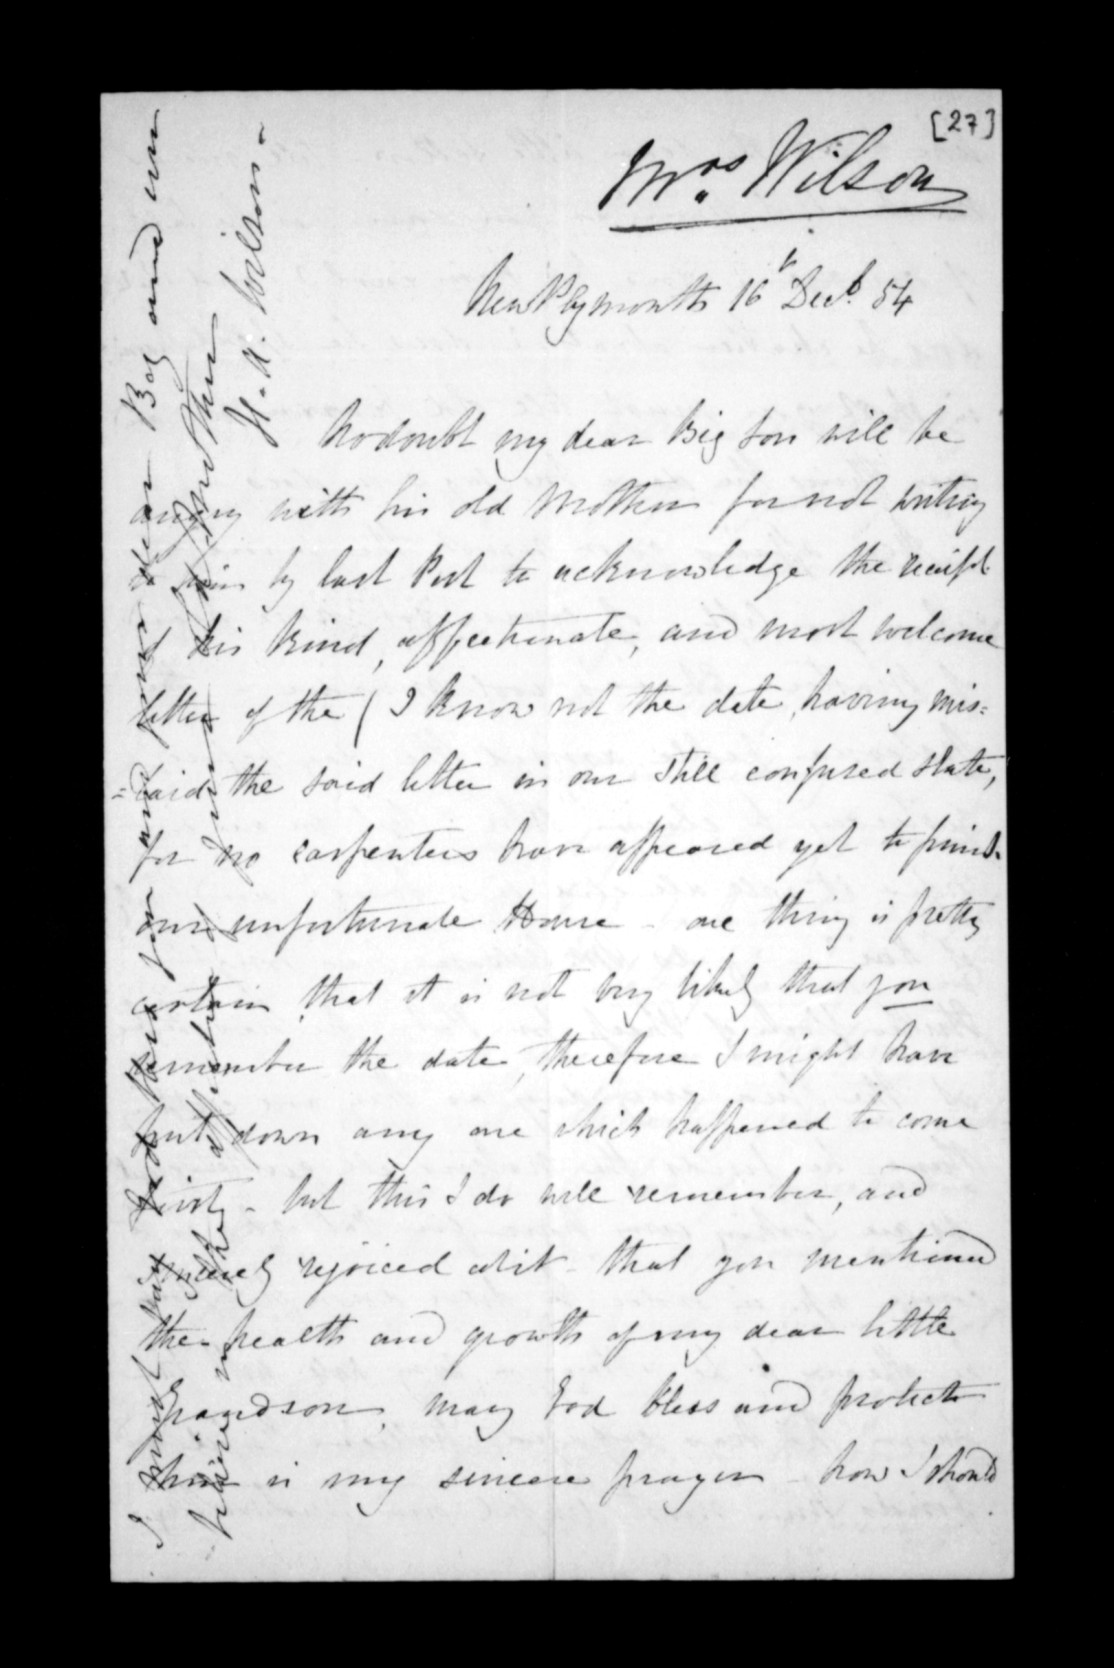 [27]
Mrs. Wilson
New Plymouth 16th Decb. 54
No doubt my dear Big Son will be
angry with his old Mother for not writing
to him by last Post to acknowledge the receipt
of his kind, affectionate, and most welcome
letter of the ( I know not the date, having mis=
=laid the said letter in our still confused state,
for no carpenters have appeared yet to finish
our unfortunate House - one thing is pretty
certain, that it is not very likely that you
remember the date, therefore I might have
put down any one which happened to come
first - but this I do well remember, and
sincerely rejoiced at it - that you mentioned
the health and growth of my dear little
Grandson, may God bless and protect
him is my sincere prayer - how I should
I must say God bless you and your dear Boy and
believe me the affectionate
Mother
H. A. Wilson -